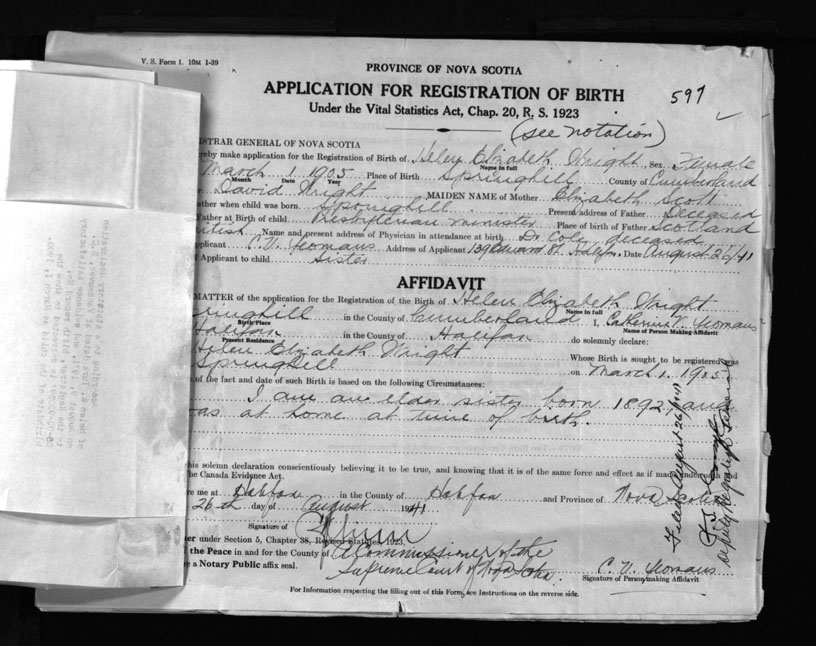 V. S. Form 1. 10M 1-39
PROVINCE OF NOVA SCOTIA
APPLICATION FOR REGISTRATION OF BIRTH
597
Under the Vital Statistics Act, Chap. 20, R. S. 1923
(see notation)
ISTRAR GENERAL OF NOVA SCOTIA
reby make application for the Registration of Birth of Helen Elizabeth Wright, Sex Female
Name in full
March 1 1905 Place of Birth Springhill County of Cumberland
Month Date Year
David Wright MAIDEN NAME of Mother Elizabeth Scott
ather when child was born Springhill Present address of Father Deceased
Father at Birth of child Presbyterian minister Place of birth of Father Scotland
Name and present address of Physician in attendance at birth Dr Cole, deceased
pplicant C. V. Yeomans Address of Applicant 139 St. Halifax. Date August 26/41
f Applicant to child Sister
AFFIDAVIT
MATTER of the application for the Registration of the Birth of Helen Elizabeth Wright
Name in full
ringhill in the County of Cumberland I, Catherine V. Yeomans
Birth Place
Name of Person Making Affidavit
Halifax in the County of Halifax do solemnly declare:
Present Residence
Helen Elizabeth Wright Whose Birth is sought to be registered was
Springhill on March 1. 1905
of the fact and date of such Birth is based on the following Circumstances:
I am an elder sister born 1892, and
was at home at time of birth.
his solemn declaration conscientiously believing it to be true, and knowing that it is of the same force and effect as if made under oath and
The Canada Evidence Act.
re me at Halifax in the County of Halifax and Province of Nova Scotia
26th day of August 1941
Signature of
er under Section 5, Chapter 38, Revised Statutes, 1923,
the Peace in and for the County of A Commissioner of the
e a Notary Public affix seal. Supreme Court of Nova Scotia.
C. V. Yeomans
Signature of Person making Affidavit
For Information respecting the filling out of this Form, see Instructions on the reverse side.
Filed August 26/1941
Deputy Registrar General